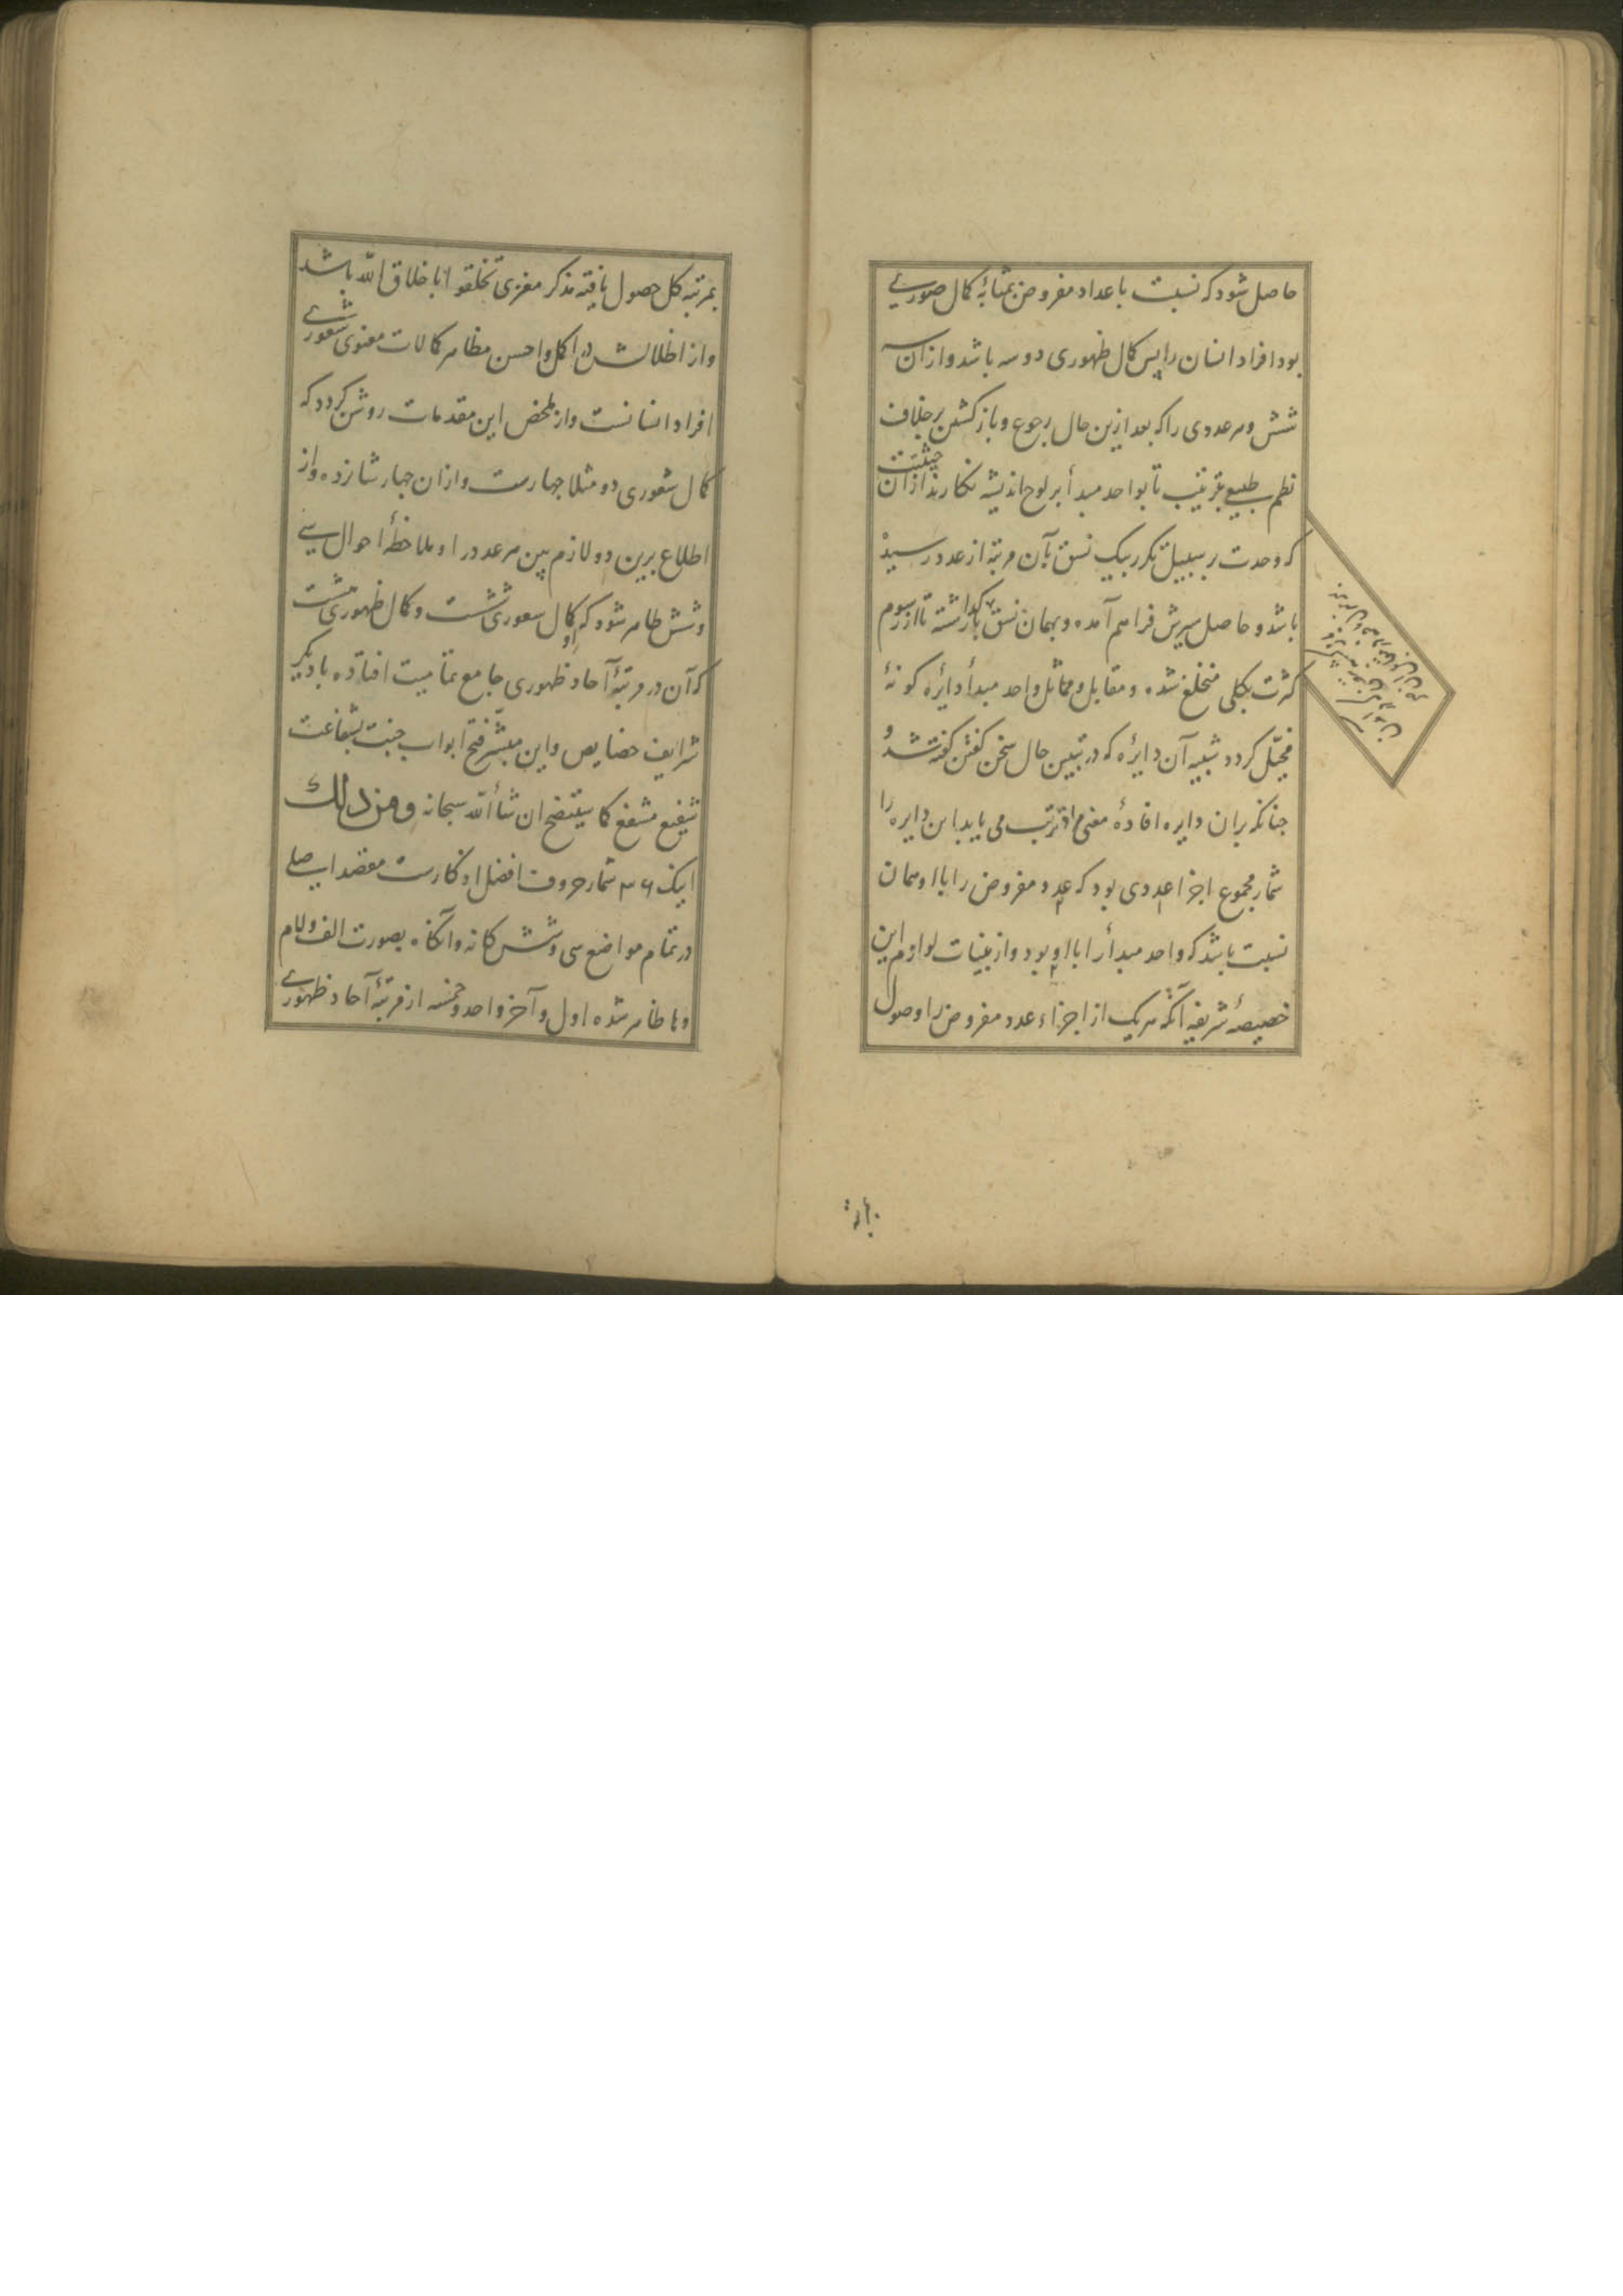 حاصل شود که نسبت با عداد مفروض بمثابهٔ کمال صوری
بود افراد انسان را پس کمال ظهوری دو سه باشد و از آن سه
شش و هر عددی را که بعد ازین حال رجوع و باز کشتن بر خلاف
نظم طبیعی بترتیب تا بواحد مبدأ بر لوح اندیشه نکارند از آن حیثیت
که وحدت بر سبیل تکرر بیک نسق بآن مرتبه از عدد رسیده
باشد و حاصل سیرش فراهم آمده و بهمان نسق باز گذاشته تا از رسوم
کثرت بکلی منخلع شده و مقابل و مماثل واحد مبدأ دایرهٔ کونهٔ
مخیّل کردد شبیه آن دایره که در تبیین حال سخن کفتن کفته شد و
جنانکه بران دایره افادهٔ معنی مترتب می یابد این دایره را
شمار مجموع اجزا عددی بود که عدد مفروض را با او همان
نسبت باشد که واحد مبدأ را با او بود و از بینات لوازم این
خصیصهٔ شریفه آنکه هر یک از اجزاء عدد مفروض را وصول
بمرتبه کل حصول یافته مذکر مغزی تخلقوا باخلاق الله باشد
و از اظلالش در اکمل و احسن مظاهر کمالات معنوی شعوری
افراد انسانست و از ملخص این مقدمات روشن کردد که
کمال شعوری دو مثلا جهارست و از ان جهار شانزده و از
اطلاع برین دو لازم بین هر عدد را و ملاحظهٔ احوال سی
و شش ظاهر شود که او کمال شعوری شش است و کمال ظهوری هشت
که آن در مرتبهٔ آحاد ظهوری جامع تمامیت افتاده با دیکر
شرایف خصایص و این مبشّر فتح ابواب جنت بشفاعت
شفیع مشفع کما سیتضح ان شأ الله سبحانه ومن ذلک
اینک ۳۶ شمار حروف افضل اذکارست مقصد اصلی
در تمام مواضع سی و شش کانه و آنکاه بصورت الف و لام
و ها ظاهر شده اول و آخر واحد و خمسه از مرتبهٔ آحاد ظهوری